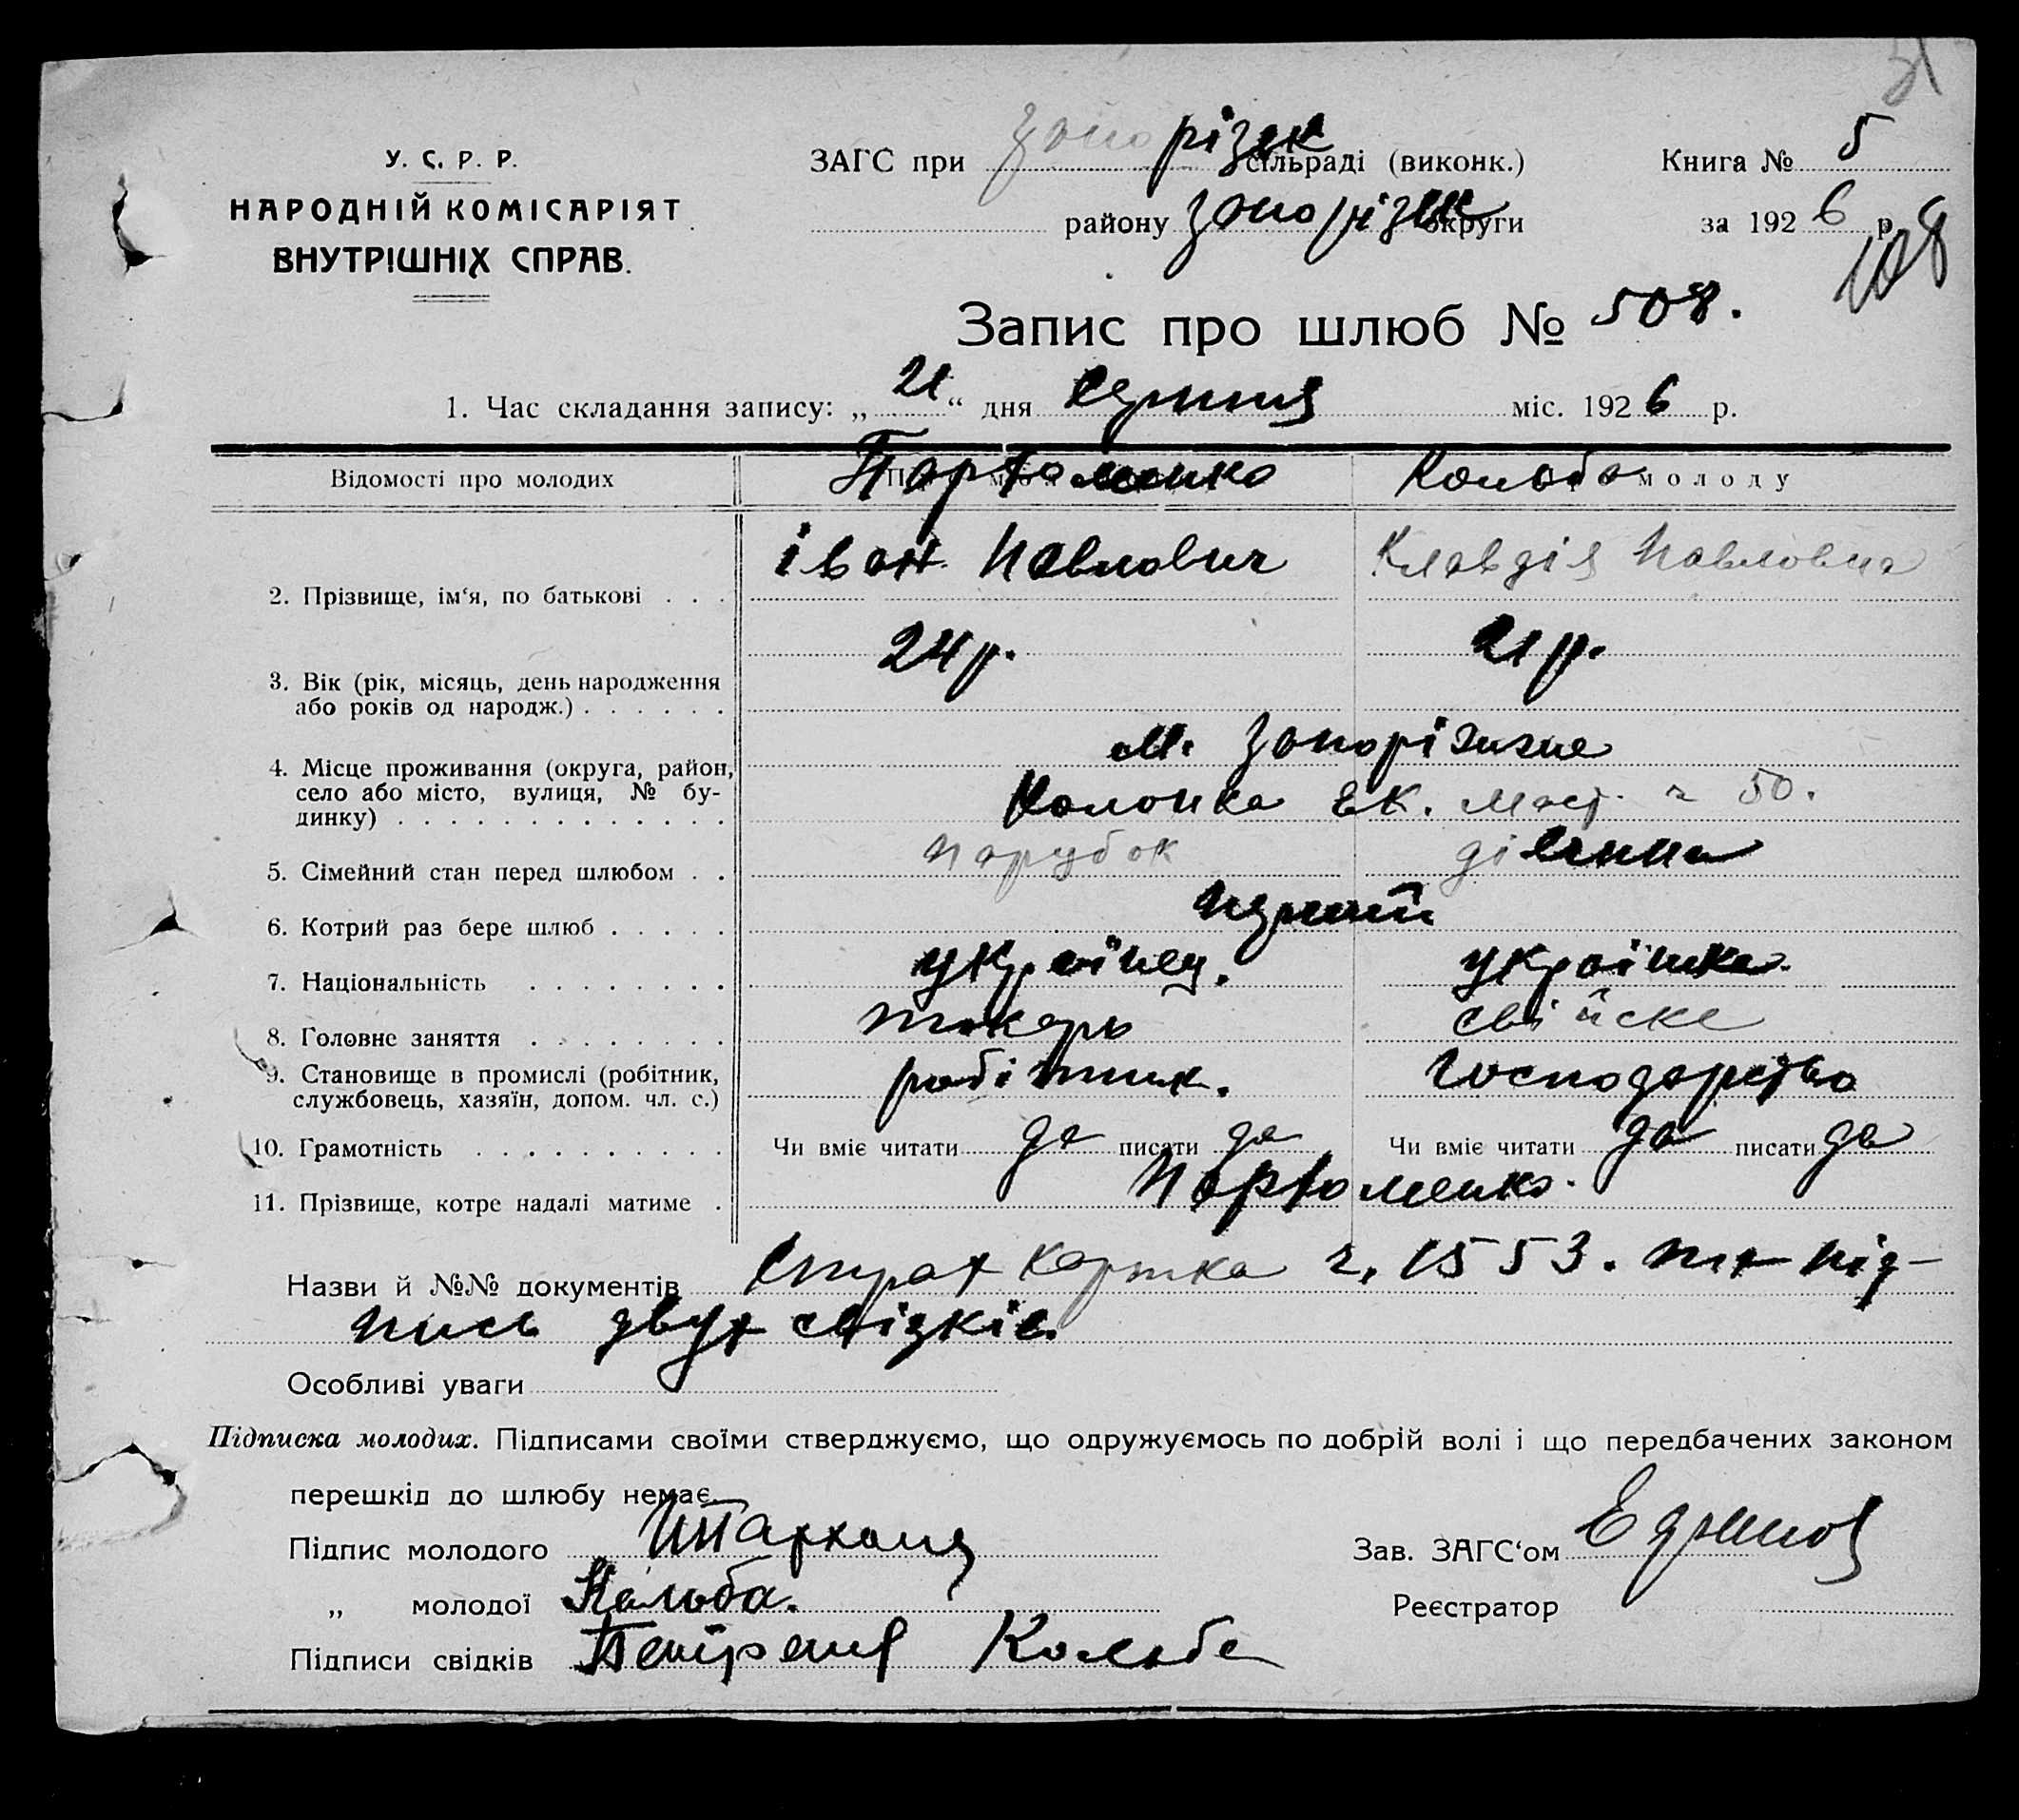 31
У. С. Р. Р.
НАРОДНІЙ КОМІСАРІЯТ
ВНУТРІШНІХ СПРАВ.
ЗАГС при Запорізьк сільраді (виконк.) Книга № 5
району Запорізьк округи за 1926 р.
108
Запис про шлюб № 508.
1. Час складання запису: „21“ дня Серпня міс. 1926 р.
Відомості про молодих Партоменко Кольба молоду
Іван Павлович Клавдія Павловна
2. Прізвище, ім‘я, по батькові . . .
24 р. 21 р.
3. Вік (рік, місяць, день народження
або років од народж.) . . . . . .
м. Запоріжже
4. Місце проживання (округа, район,
село або місто, вулиця, № бу-
динку) . . . . . . . . . . . . .
Колонка Ек. Маст. ч 50.
5. Сімейний стан перед шлюбом . . парубок дівчина
6. Котрий раз бере шлюб . . . . . перший
7. Національність . . . . . . . . українец. українка.
8. Головне заняття . . . . . . . . токарь свійске
9. Становище в промислі (робітник,
службовець, хазяїн, допом. чл. с.) робітник. господарство
10. Грамотність . . . . . . . . . . Чи вміє читати да писати да Чи вміє читати да писати да
11. Прізвище, котре надалі матиме . Партоменко.
Назви й №№ документів Страх картка ч. 1553. та під-
пись двух свідків.
Особливі уваги
Підписка молодих. Підписами своїми стверджуємо, що одружуємось по добрій волі і що передбачених законом
перешкід до шлюбу немає.
Підпис молодого Зав. ЗАГС‘ом
„ молодої Кольба. Реєстратор
Підписи свідків Кольба